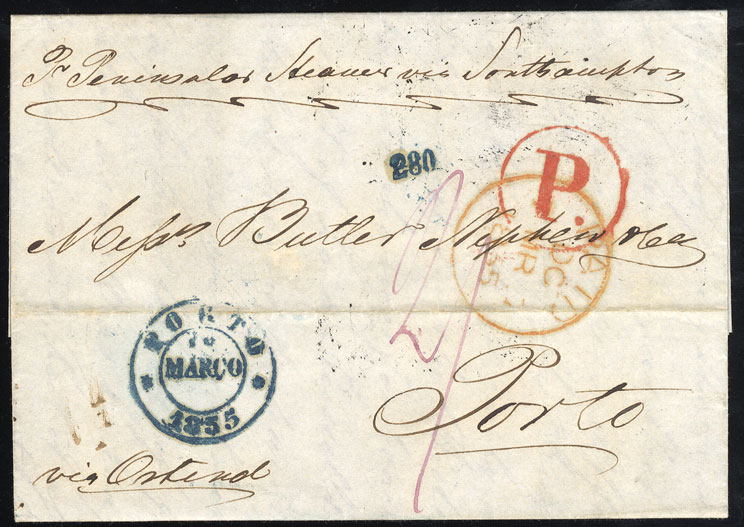 Pr Peninsular Steamer via Southampton
280
P.
Messrs Butler Nephew & Co
PAID
DC
MR
1855
2/
PORTO
MARÇO
1855
Porto
via Ostend